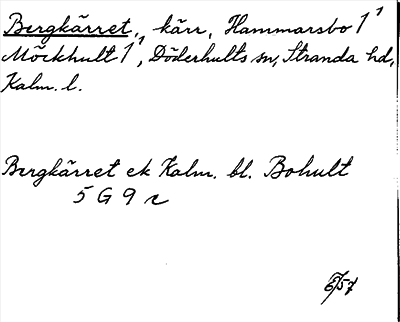 Bergkärret, kärr, Hammarsbo 1¹
Möckhult 1¹, Döderhults sn, Stranda hd,
Kalm. l.
Bergkärret ek Kalm. bl. Bohult
5 G 9 c